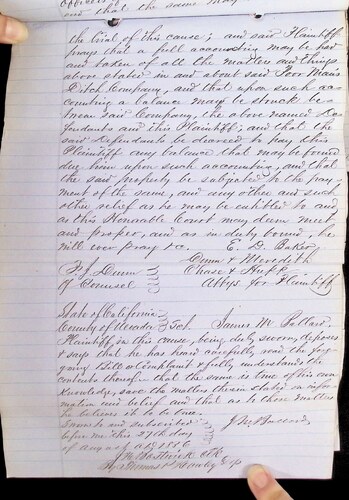 and that the same may
the trial of this cause; and said Plaintiff
prays that a full accounting may be had
and taken of all the matters and things
above stated in and about said Poor Man's
Ditch Company, and that upon such ac-
counting a balance may be struck be-
tween said Company, the above named De-
fendants and this Plaintiff; and that the
said Defendants be decreed to pay this
Plaintiff any balance that may be found
due him upon such accounting, and that
the said property be subjected to the pay-
ment of the same, and any other and such
other relief as he may be entitled to and
as this Honorable Court may deem meet
and proper, and as in duty bound, he
will ever pray &c.
E. D. Baker
Dunn & Meredith
F. J. Dunn
Chase &
of Counsel
Attys for Plaintiff
State of California
County of Nevada Sct. James M.
Plaintiff in this cause, being duly sworn, deposes
& says that he has heard carefully read the fore-
going Bill of Complaint & fully understands the
contents thereof that the same is true of his own
knowledge, save the matters therein stated on infor-
mation and belief and that as to those matters
he believes it to be true.
Sworn to and subscribed
before me this 27th day
of August A.D. 1856